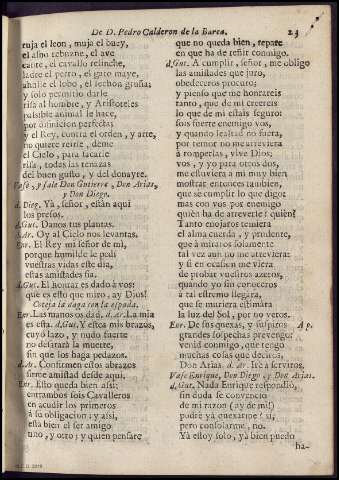 De D. Pedro Calderon de la Barca. 23
ruja el leon, muja el buey,
el asno rebuzne, el ave
cante, el cavallo relinche,
ladre el perro, el gato maye,
ahulle el lobo, el lechon gruña;
y solo permitiò darle
risa al hombre, y Aristoteles
risible animal le hace,
por difinicion perfecta;
y el Rey, contra el orden, y arte,
no quiere reirse, deme
el Cielo, para sacarle
risa, todas las tenazas
del buen gusto, y del donayre.
Vase, y sale Don Gutierre, Don Arias,
y Don Diego.
d. Dieg. Yà, señor, estàn aqui
los presos.
d. Gut. Danos tus plantas.
d. Ar. Oy al Cielo nos levantas.
Enr. El Rey mi señor de mì,
porque humilde le pedì
vuestras vidas este dia,
estas amistades fia.
d. Gut. El honrar es dado à vos:
què es esto que miro, ay Dios!
Coteja la daga con la espada.
Enr. Las manos os dad. d. Ar. La mia
es esta. d. Gut. Y estos mis brazos,
cuyo lazo, y nudo fuerte
no desatarà la muerte,
sin que los haga pedazos.
d. Ar. Confirmen estos abrazos
firme amistad desde aqui.
Enr. Esto queda bien assi:
entrambos sois Cavalleros
en acudir los primeros
à su obligacion; y assi,
està bien el ser amigo
uno, y otro; y quien pensare
que no queda bien, repare
en que ha de reñir conmigo.
d. Gut. A cumplir, señor, me obligo
las amistades que juro,
obedeceros procuro;
y pienso que me honrareis
tanto, que de mì creereis
lo que de mì estais seguro:
sois fuerte enemigo vos,
y quando lealtad no fuera,
por temor no me atreviera
à romperlas, vive Dios:
vos, y yo para otros dos,
me estuviera à mì muy bien
mostrar entonces tambien,
que sè cumplir lo que digo:
mas con vos por enemigo,
quièn ha de atreverse? quièn?
Tanto enojaros temiera
el alma cuerda, y prudente,
que à miraros solamente
tal vez aun no me atreviera:
y si en ocasion me viera
de probar vuestros azeros,
quando yo sin conoceros
à tal estremo llegàra,
que se muriera estimàra
la luz del Sol, por no veros.
Enr. De sus quexas, y suspiros Ap.
grandes sospechas prevengo:
venid conmigo, que tengo
muchas cosas que deciros,
Don Arias. d. Ar. Irè à serviros.
Vase Enrique, Don Diego, y Don Arias.
d. Gut. Nada Enrique respondiò,
sin duda se convenciò
de mi razon (ay de mì!)
podrè yà quexarme? sì,
pero consolarme, no.
Yà estoy solo, yà bien puedo
ha-